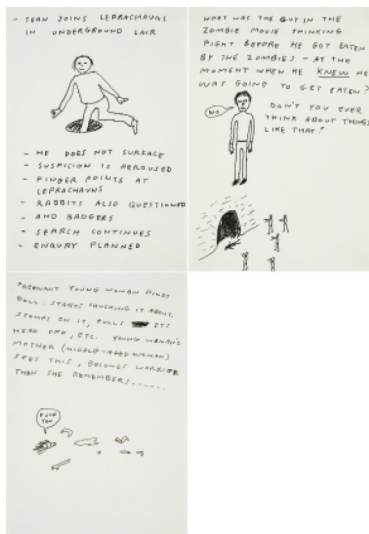 - SEAN JOINS LEPRACHAUNS
IN UNDERGROUND LAIR
- HE DOES NOT SURFACE
- SUSPICION IS ARROUSED
- FINGER POINTS AT
LEPRACHAUNS
- RABBITS ALSO QUESTIONED
- AND BADGERS
- SEARCH CONTINUES
- ENQURY PLANNED
WHAT WAS THE GUY IN THE
ZOMBIE MOVIE THINKING
RIGHT BEFORE HE GOT EATEN
BY THE ZOMBIES - AT THE
MOMENT WHEN HE KNEW HE
WAS GOING TO GET EATEN?
DON'T YOU EVER
THINK ABOUT THINGS
LIKE THAT?
NO
PREGNANT YOUNG WOMAN
DOLL. STARTS CHUCKING IT ABOUT,
STAMPS ON IT, PULLS ITS
HEAD OFF, ETC. YOUNG WOMAN'S
MOTHER (MIDDLE-AGED WOMAN)
SEES THIS, BECOMES
THAN SHE REMEMBERS......
FUCK
YOU